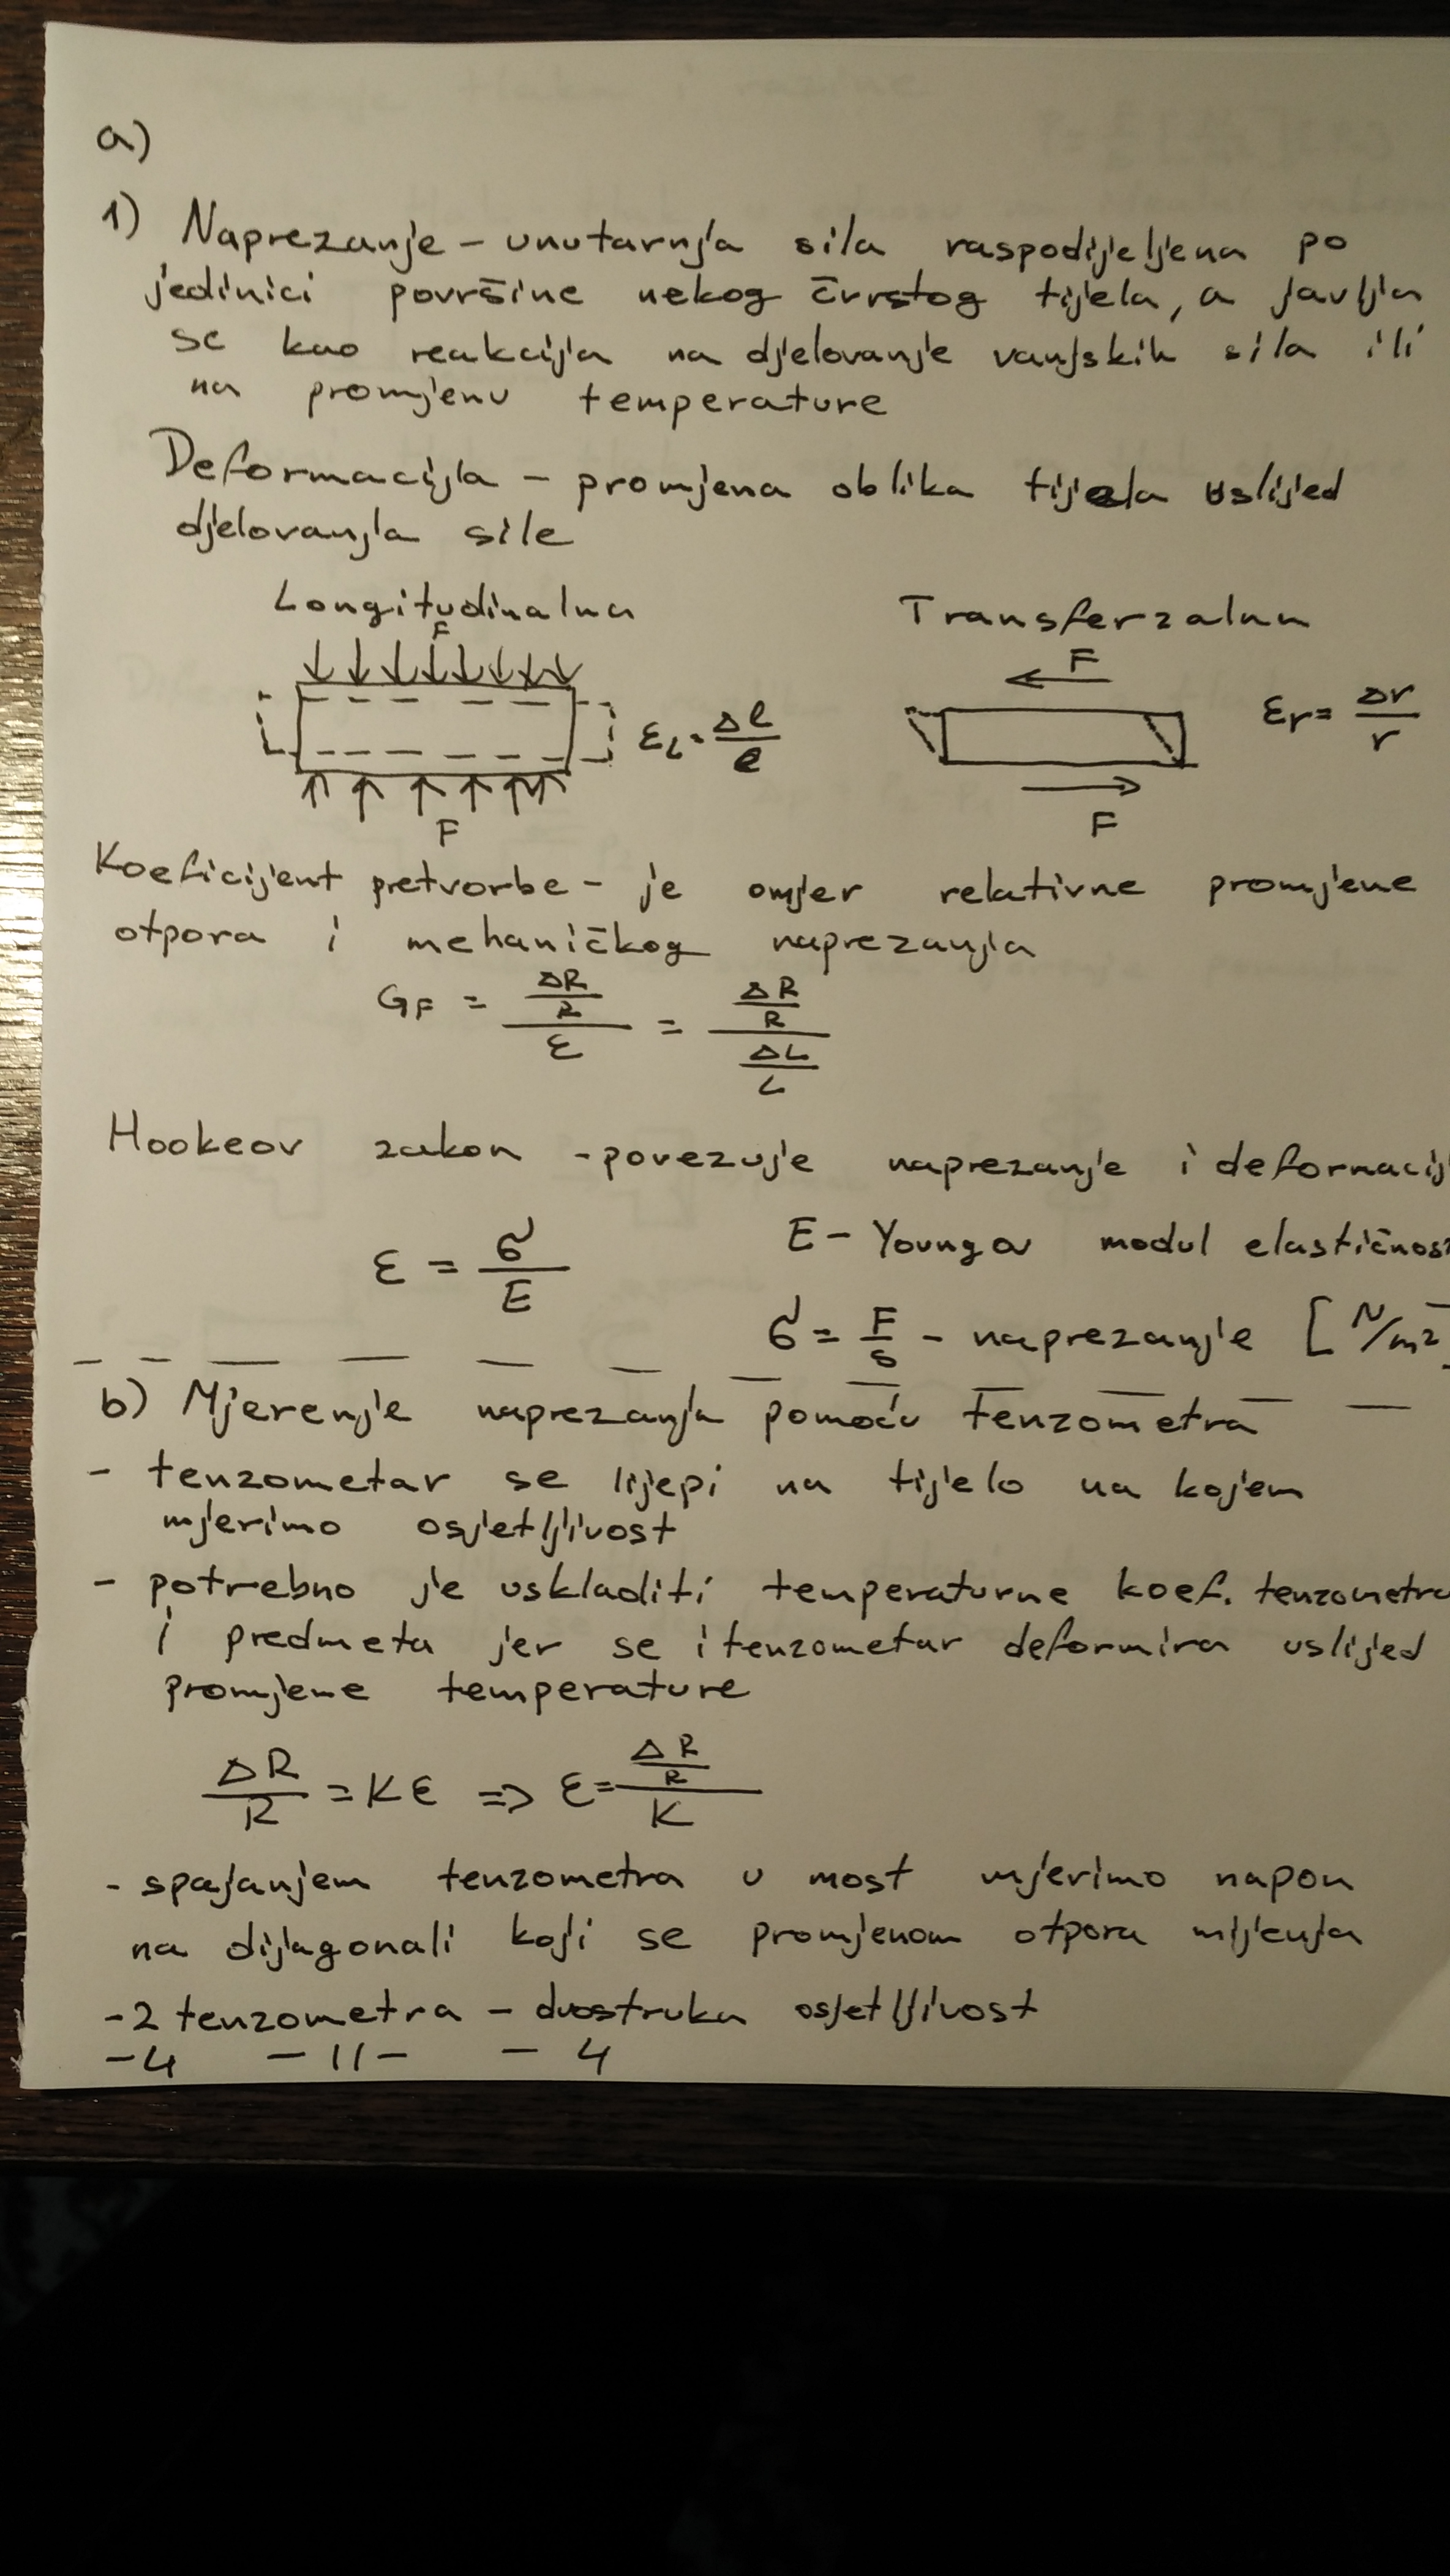 a)
1) Naprezanje - unutarnja sila raspodijeljena po
jedinici površine nekog čvrstog tijela, a javlja
se kao reakcija na djelovanje vanjskih sila ili
na promjenu temperature
Deformacija - promjena oblika tijela uslijed
djelovanja sile
Longitudinalna
F
F
εL = Δl/l
Transferzalna
F
F
εr = Δr/r
Koeficijent pretvorbe - je omjer relativne promjene
otpora i mehaničkog naprezanja
GF = (ΔR/R)/ε = (ΔR/R)/(ΔL/L)
Hookeov zakon - povezuje naprezanje i deformacij
ε = σ/E
E - Youngov modul elastičnos
σ = F/S - naprezanje [N/m²]
b) Mjerenje naprezanja pomoću tenzometra
- tenzometar se lijepi na tijelo na kojem
mjerimo osjetljivost
- potrebno je uskladiti temperaturne koef. tenzometra
i predmeta jer se i tenzometar deformira uslijed
promjene temperature
ΔR/R = Kε => ε = (ΔR/R)/K
- spajanjem tenzometra u most mjerimo napon
na dijagonali koji se promjenom otpora mijenja
- 2 tenzometra - dvostruka osjetljivost
- 4 -11- - 4